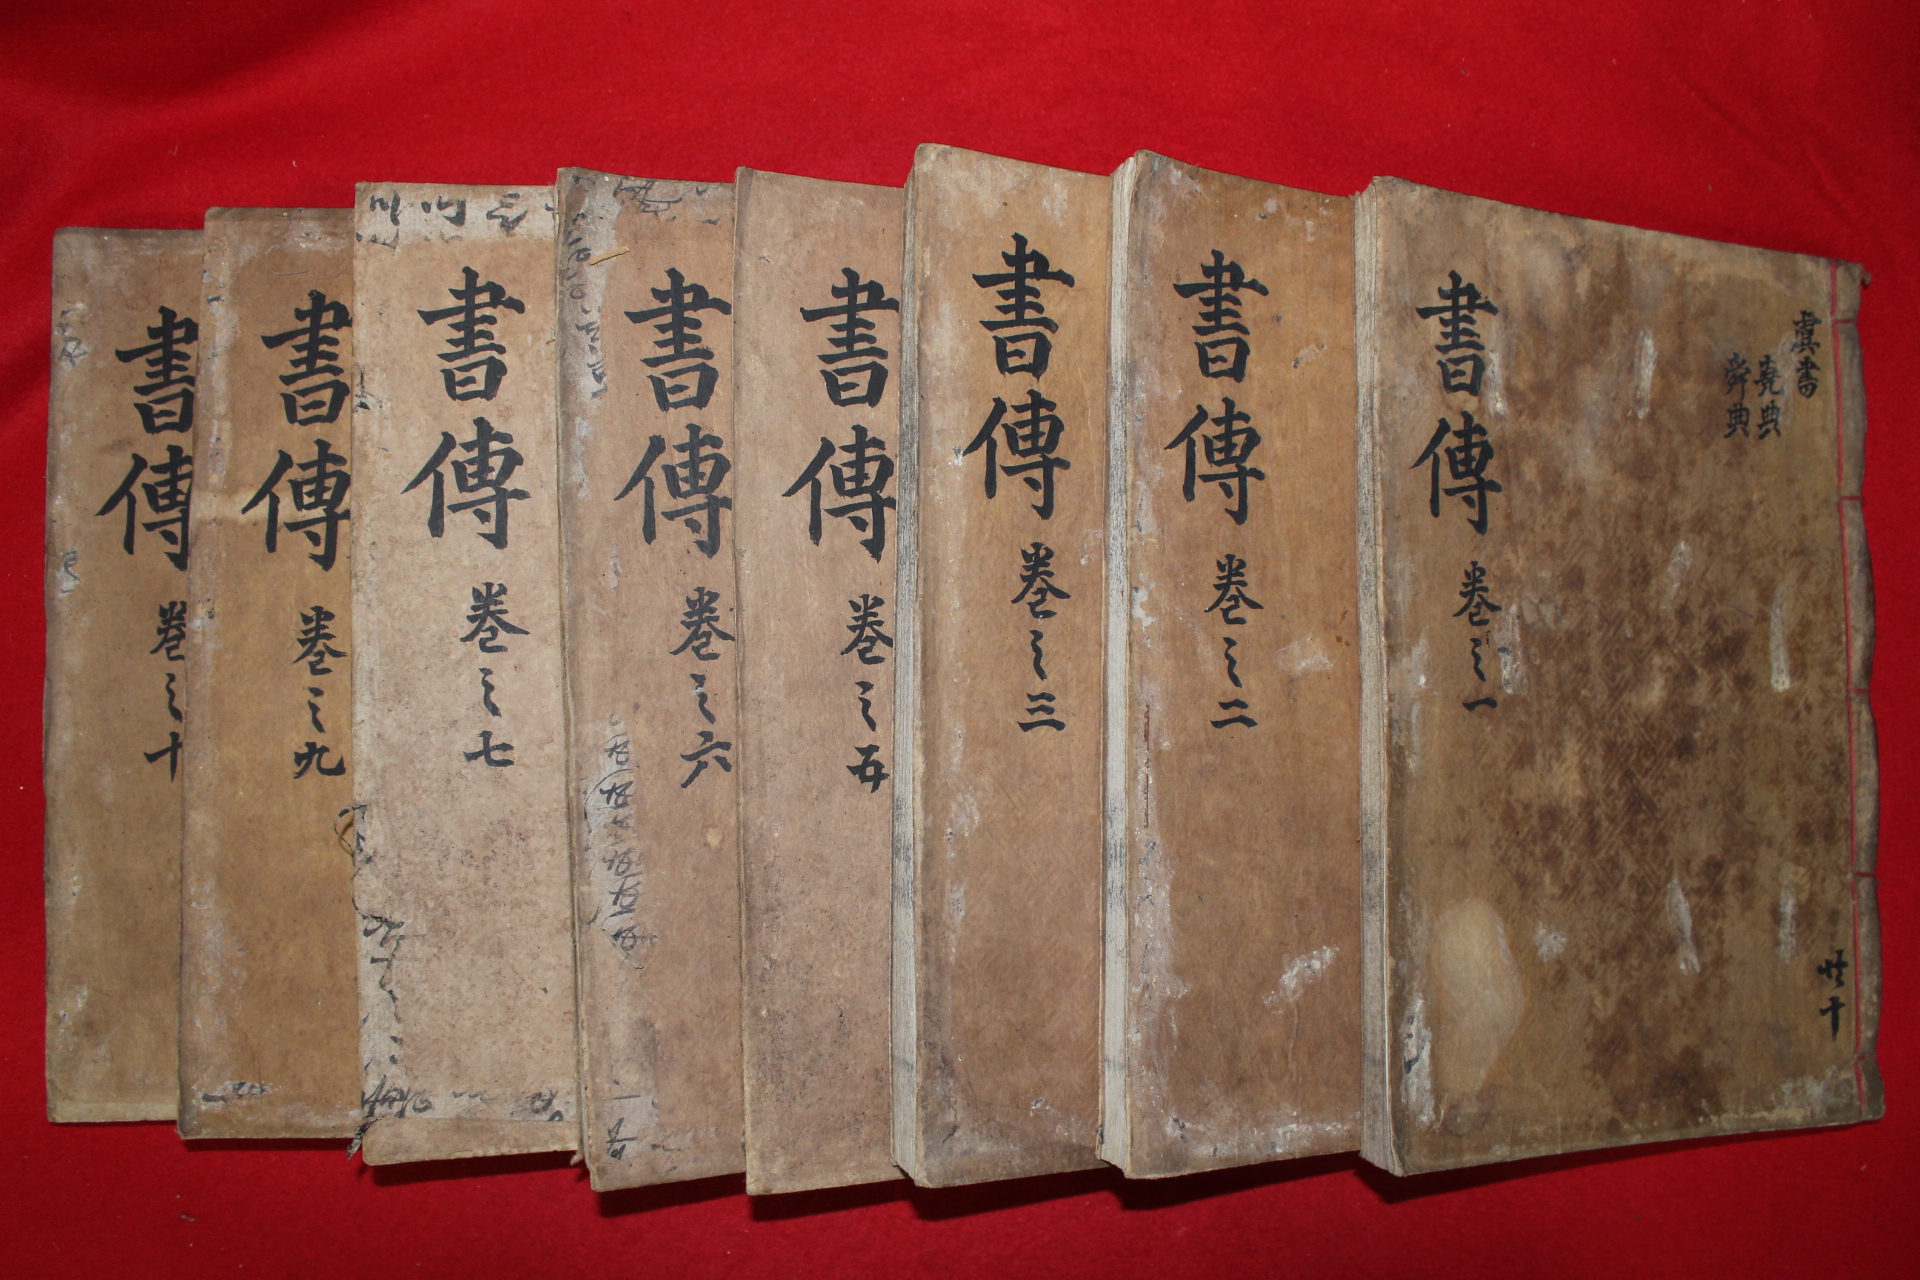 虞書
堯典
舜典
共十
書傳 卷之一
書傳 卷之二
書傳 卷之三
書傳 卷之五
書傳 卷之六
書傳 卷之七
書傳 卷之九
書傳 卷之十